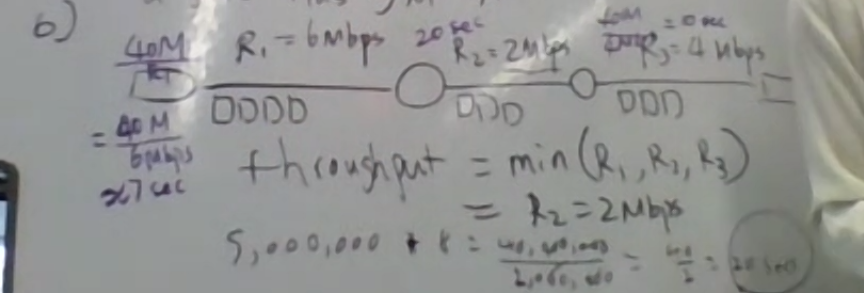 b)
40M R₁ = 6Mbps 20sec R₂ = 2Mbps 40M = 0sec R₃ = 4Mbps
= 40M
6Mbps
≈7sec
throughput = min(R₁, R₂, R₃)
= R₂ = 2Mbps
5,000,000 * 8 = 40,000,000 / 2,000,000 = 40/2 = 20 sec